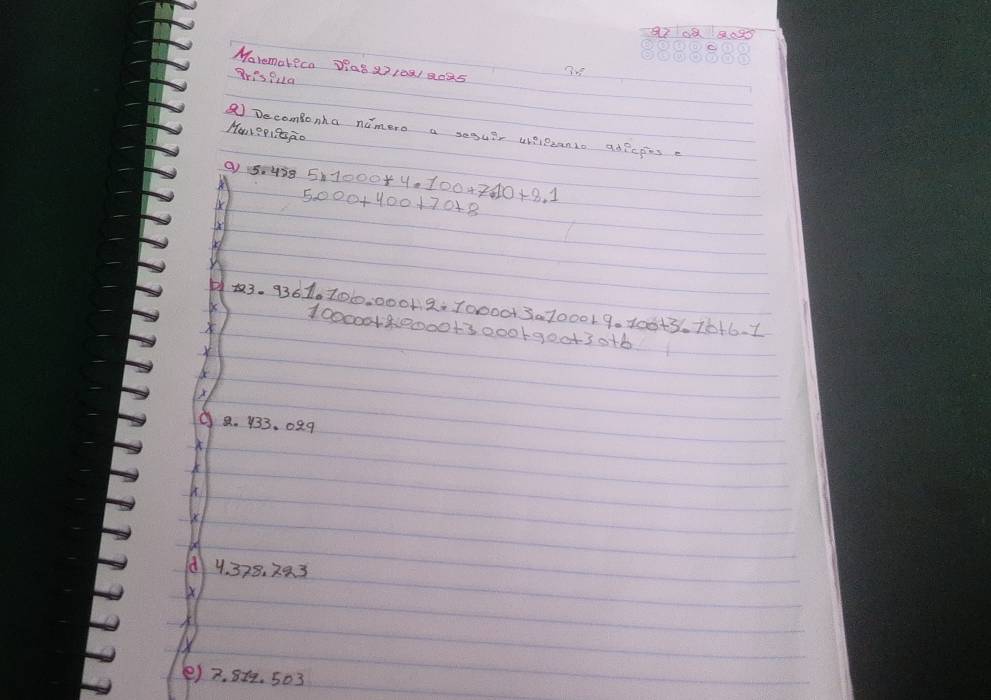 27 02 2025
Matematica Dias 27/02/2025
Prisila
2) Decomponha número a seguir utilizando adicpões e
Multiplição
a) 5.478 5.1000+4.100+7.10+8.1
5.000+400+70+8
b) 123.936 1.100.000+2.10000+3.1000+9.100+3.10+6.1
100000+20000+3000+900+30+6
c) 2.433.029
d) 4.378.723
e)